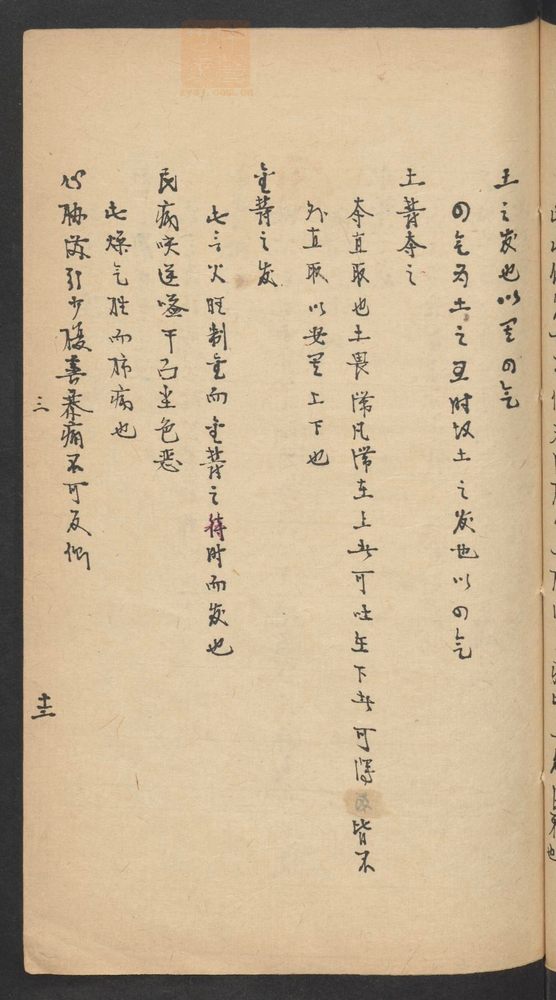 土之发也以其四气
四气为土之王时故土之发也以四气
土郁夺之
夺直取也土畏滞凡滞在上者可吐在下者可泻 皆不
外直取以安其上下也
金郁之发
此言火旺制金而金郁之待时而发也
民病咳逆嗌干面尘色恶
此燥气胜而肺病也
心胁满引少腹善暴痛不可反侧
三
十三